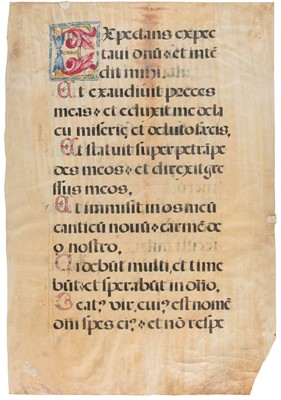 Expectans expec
tavi dnū et intē
dit mihi.
Et exaudivit preces
meas et eduxit me de la
cu miserię et de luto fæcis,
Et statuit super petrā pe
des meos et direxit gre
ssus meos,
Et immisit in os meū
canticū novū carmē de
o nostro,
Videbūt multi, et time
būt et sperabūt in dno,
Beatꝰ vir, cuiꝰ est nomē
dni spes eiꝰ et nō respe